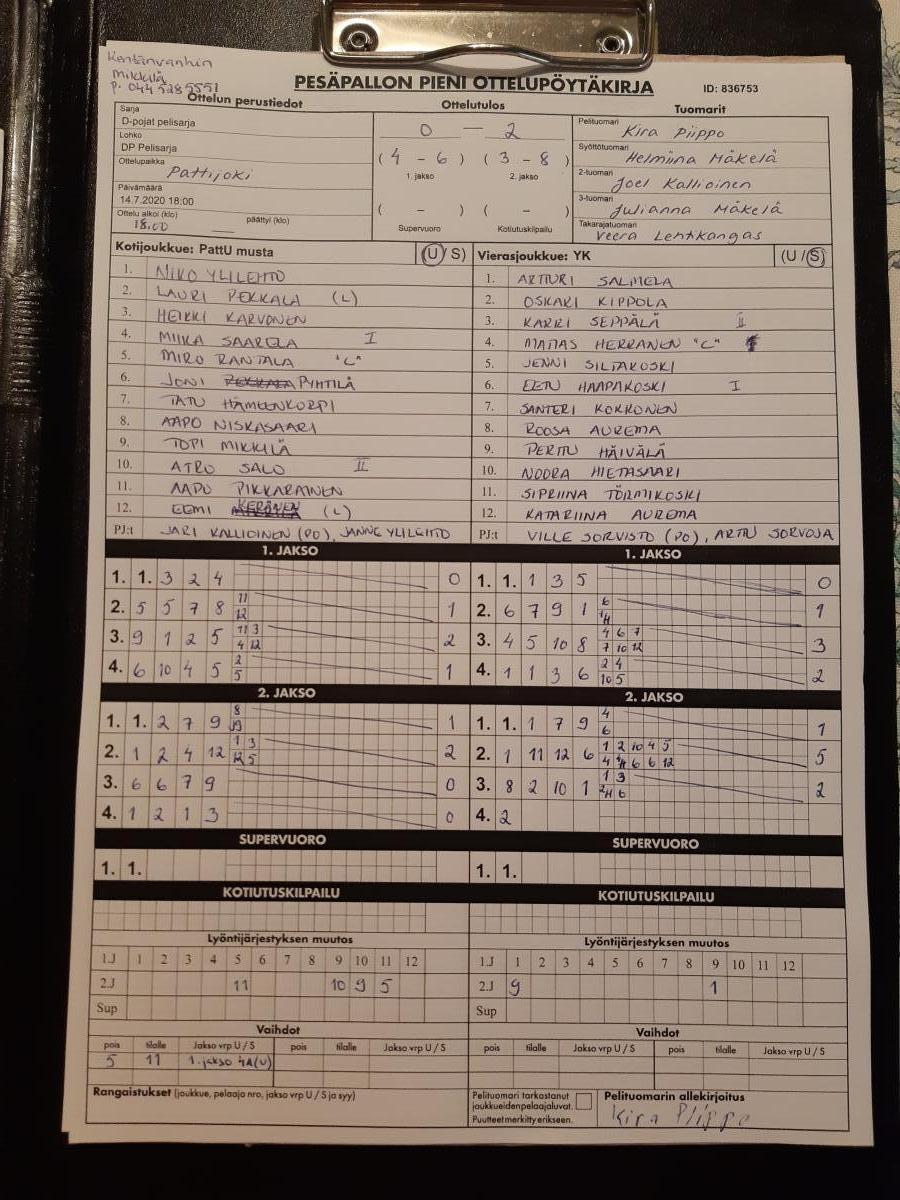 Kentänvanhin
Mikkilä
p. 044 5289551
PESÄPALLON PIENI OTTELUPÖYTÄKIRJA
ID: 836753
Ottelun perustiedot
Ottelutulos
Tuomarit
Sarja
D-pojat pelisarja
Lohko
DP Pelisarja
Ottelupaikka
Pattijoki
Päivämäärä
14.7.2020 18:00
Ottelu alkoi (klo) 18.00 päättyi (klo)
0 — 2
( 4 - 6 ) ( 3 - 8 )
1. jakso 2. jakso
( - ) ( - )
Supervuoro Kotiutuskilpailu
Pelituomari Kira Piippo
Syöttötuomari Helmiina Mäkelä
2-tuomari Joel Kallioinen
3-tuomari Julianna Mäkelä
Takarajatuomari Veera Lehtikangas
Kotijoukkue: PattU musta (U/S)
1. NIKO YLILEHTO
2. LAURI PEKKALA (L)
3. HEIKKI KARVONEN
4. MIIKA SAARELA I
5. MIRO RANTALA "C"
6. JONI PYHTILÄ
7. TATU HÄMEENKORPI
8. AAPO NISKASAARI
9. TOPI MIKKILÄ
10. ATRO SALO II
11. AAPO PIKKARAINEN
12. EEMI KERÄNEN (L)
PJ:t JARI KALLIOINEN (PO), JANNE YLILEHTO
Vierasjoukkue: YK (U/S)
1. ARTTURI SALMELA
2. OSKARI KIPPOLA
3. KARRI SEPPÄLÄ II
4. MATIAS HERRANEN "C"
5. JENNI SILTAKOSKI
6. EETU HAAPAKOSKI I
7. SANTERI KOKKONEN
8. ROOSA AUREMA
9. PERTTU HÄIVÄLÄ
10. NOORA HIETASAARI
11. SIPRIINA TÖRMIKOSKI
12. KATARIINA AUREMA
PJ:t VILLE SORVISTO (PO), ARTTU SORVOJA
1. JAKSO
1. 1. 3 2 4 0
2. 5 5 7 8 11 12 1
3. 9 1 2 5 11 3 4 12 2
4. 6 10 4 5 2 5 1
1. JAKSO
1. 1. 1 3 5 0
2. 6 7 9 1 6 1
3. 4 5 10 8 4 6 7 7 10 12 3
4. 1 1 3 6 2 4 10 5 2
2. JAKSO
1. 1. 2 7 9 8 1
2. 1 2 4 12 1 3 5 2
3. 6 6 7 9 0
4. 1 2 1 3 0
2. JAKSO
1. 1. 1 7 9 4 6 1
2. 1 11 12 6 1 2 10 4 5 4 6 6 12 5
3. 8 2 10 1 1 3 6 2
4. 2
SUPERVUORO
1. 1.
SUPERVUORO
1. 1.
KOTIUTUSKILPAILU
KOTIUTUSKILPAILU
Lyöntijärjestyksen muutos
1.J 1 2 3 4 5 6 7 8 9 10 11 12
2.J 11 10 9 5
Sup
Lyöntijärjestyksen muutos
1.J 1 2 3 4 5 6 7 8 9 10 11 12
2.J 9 1
Sup
Vaihdot
pois tilalle Jakso vrp U / S pois tilalle Jakso vrp U / S
5 11 1.jakso 4A(U)
Vaihdot
pois tilalle Jakso vrp U / S pois tilalle Jakso vrp U / S
Rangaistukset (joukkue, pelaaja nro, jakso vrp U / S ja syy)
Pelituomari tarkastanut
joukkueidenpelaajaluvat.
Puutteet merkitty erikseen.
Pelituomarin allekirjoitus
Kira Piippo